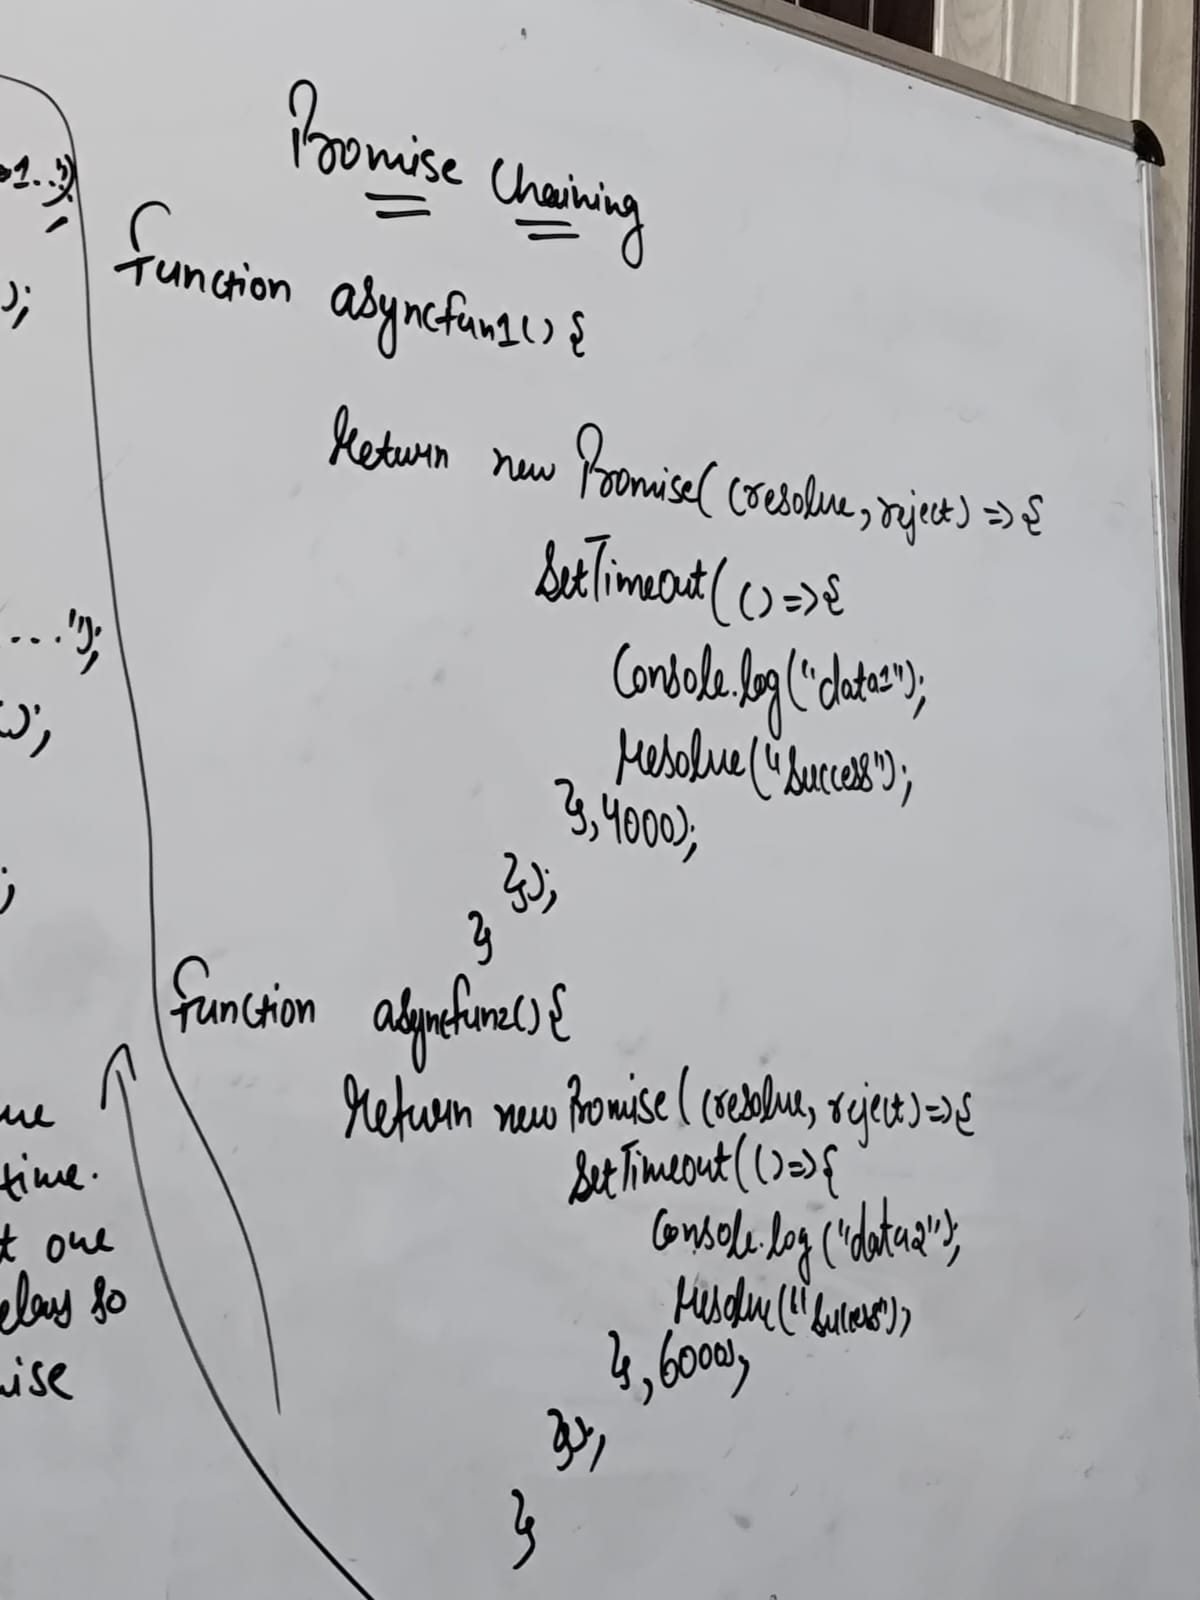 Promise Chaining
function asyncfun1() {
return new Promise( (resolve, reject) => {
SetTimeout( () => {
Console.log("data1");
resolve("Success");
}, 4000);
});
}
function asyncfun2() {
return new Promise( (resolve, reject) => {
SetTimeout( () => {
Console.log("data2");
resolve("Success");
}, 6000);
});
}
1..");
);
...");
);
;
time.
one
so